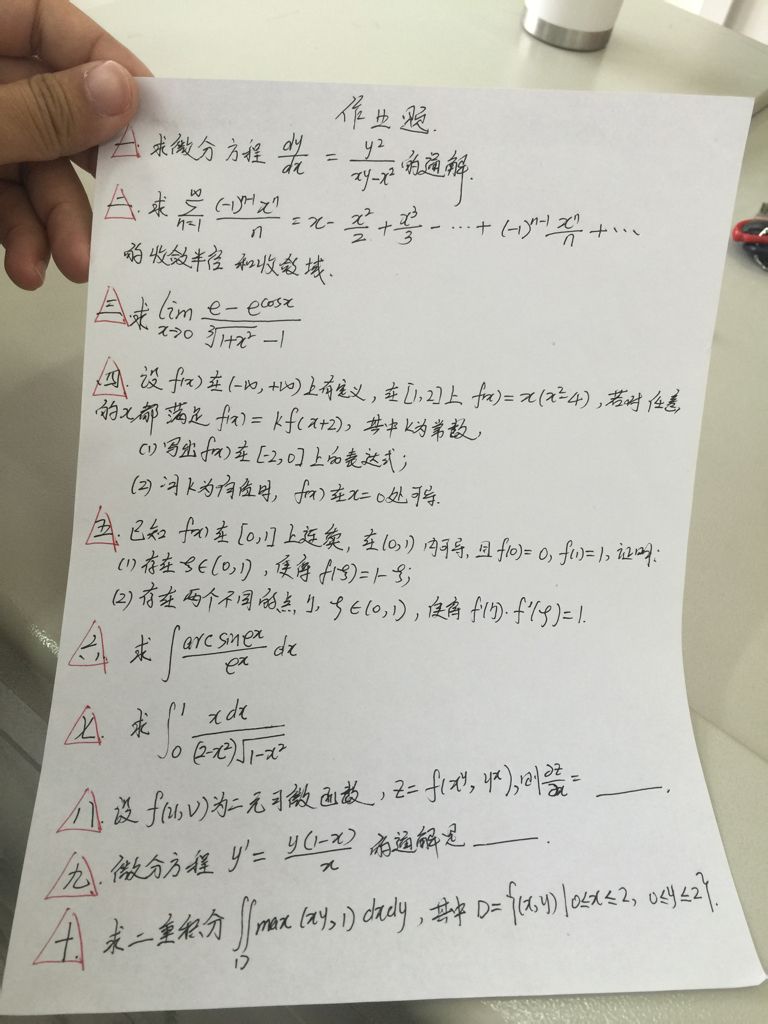 作业题.
一. 求微分方程 dy/dx = y²/(xy-x²) 的通解.
二. 求 ∑_{n=1}^{∞} (-1)^{n-1}x^n/n = x - x²/2 + x³/3 - ⋯ + (-1)^{n-1} x^n/n + ⋯
的收敛半径和收敛域.
三. 求 lim_{x→0} (e - e^{cosx})/(∛(1+x²) - 1)
四. 设 f(x) 在 (-∞, +∞) 上有定义, 在 [1,2] 上 f(x) = x(x²-4), 若对任意
的x都满足 f(x) = kf(x+2), 其中k为常数,
(1) 写出 f(x) 在 [-2,0] 上的表达式;
(2) 问k为何值时, f(x) 在x=0处可导.
五. 已知 f(x) 在 [0,1] 上连续, 在 (0,1) 内可导, 且 f(0)=0, f(1)=1, 证明:
(1) 存在 ξ∈(0,1), 使得 f(ξ)=1-ξ;
(2) 存在两个不同的点 η, ξ∈(0,1), 使得 f'(η)·f'(ξ)=1.
六. 求 ∫ (arcsin e^x)/(e^x) dx
七. 求 ∫_0^1 xdx/((2-x²)√(1-x²))
八. 设 f(u,v) 为二元可微函数, z = f(x^y, y^x), 则 ∂z/∂x = ____.
九. 微分方程 y' = y(1-x)/x 的通解是 ____.
十. 求二重积分 ∬_D max(xy,1) dxdy, 其中 D={(x,y)|0≤x≤2, 0≤y≤2}.